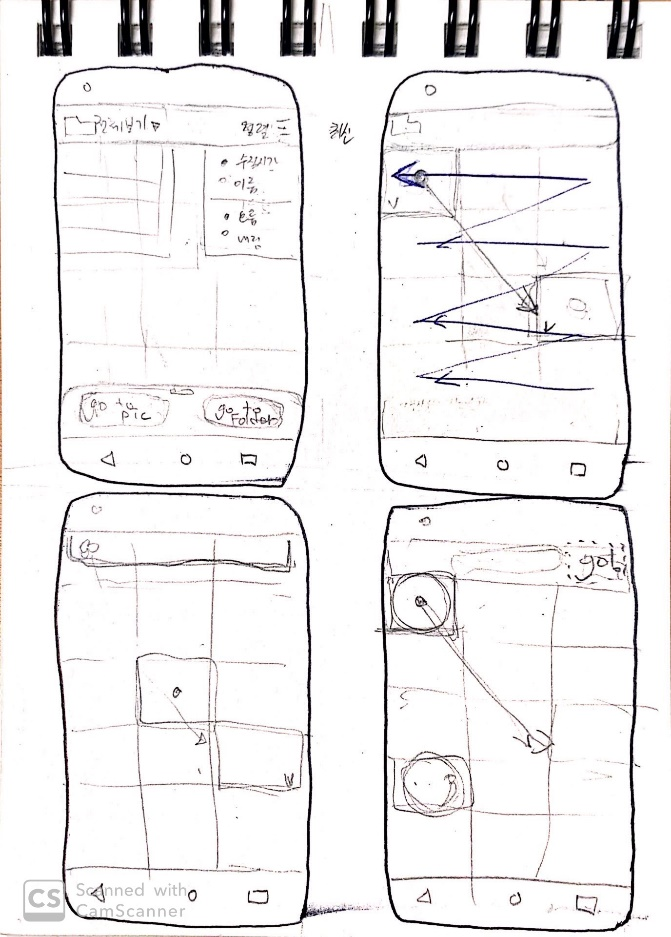 전체보기
정렬
수정시간
이름
오름
내림
최신
go to
pic
go to
Folder
go
CS Scanned with
CamScanner